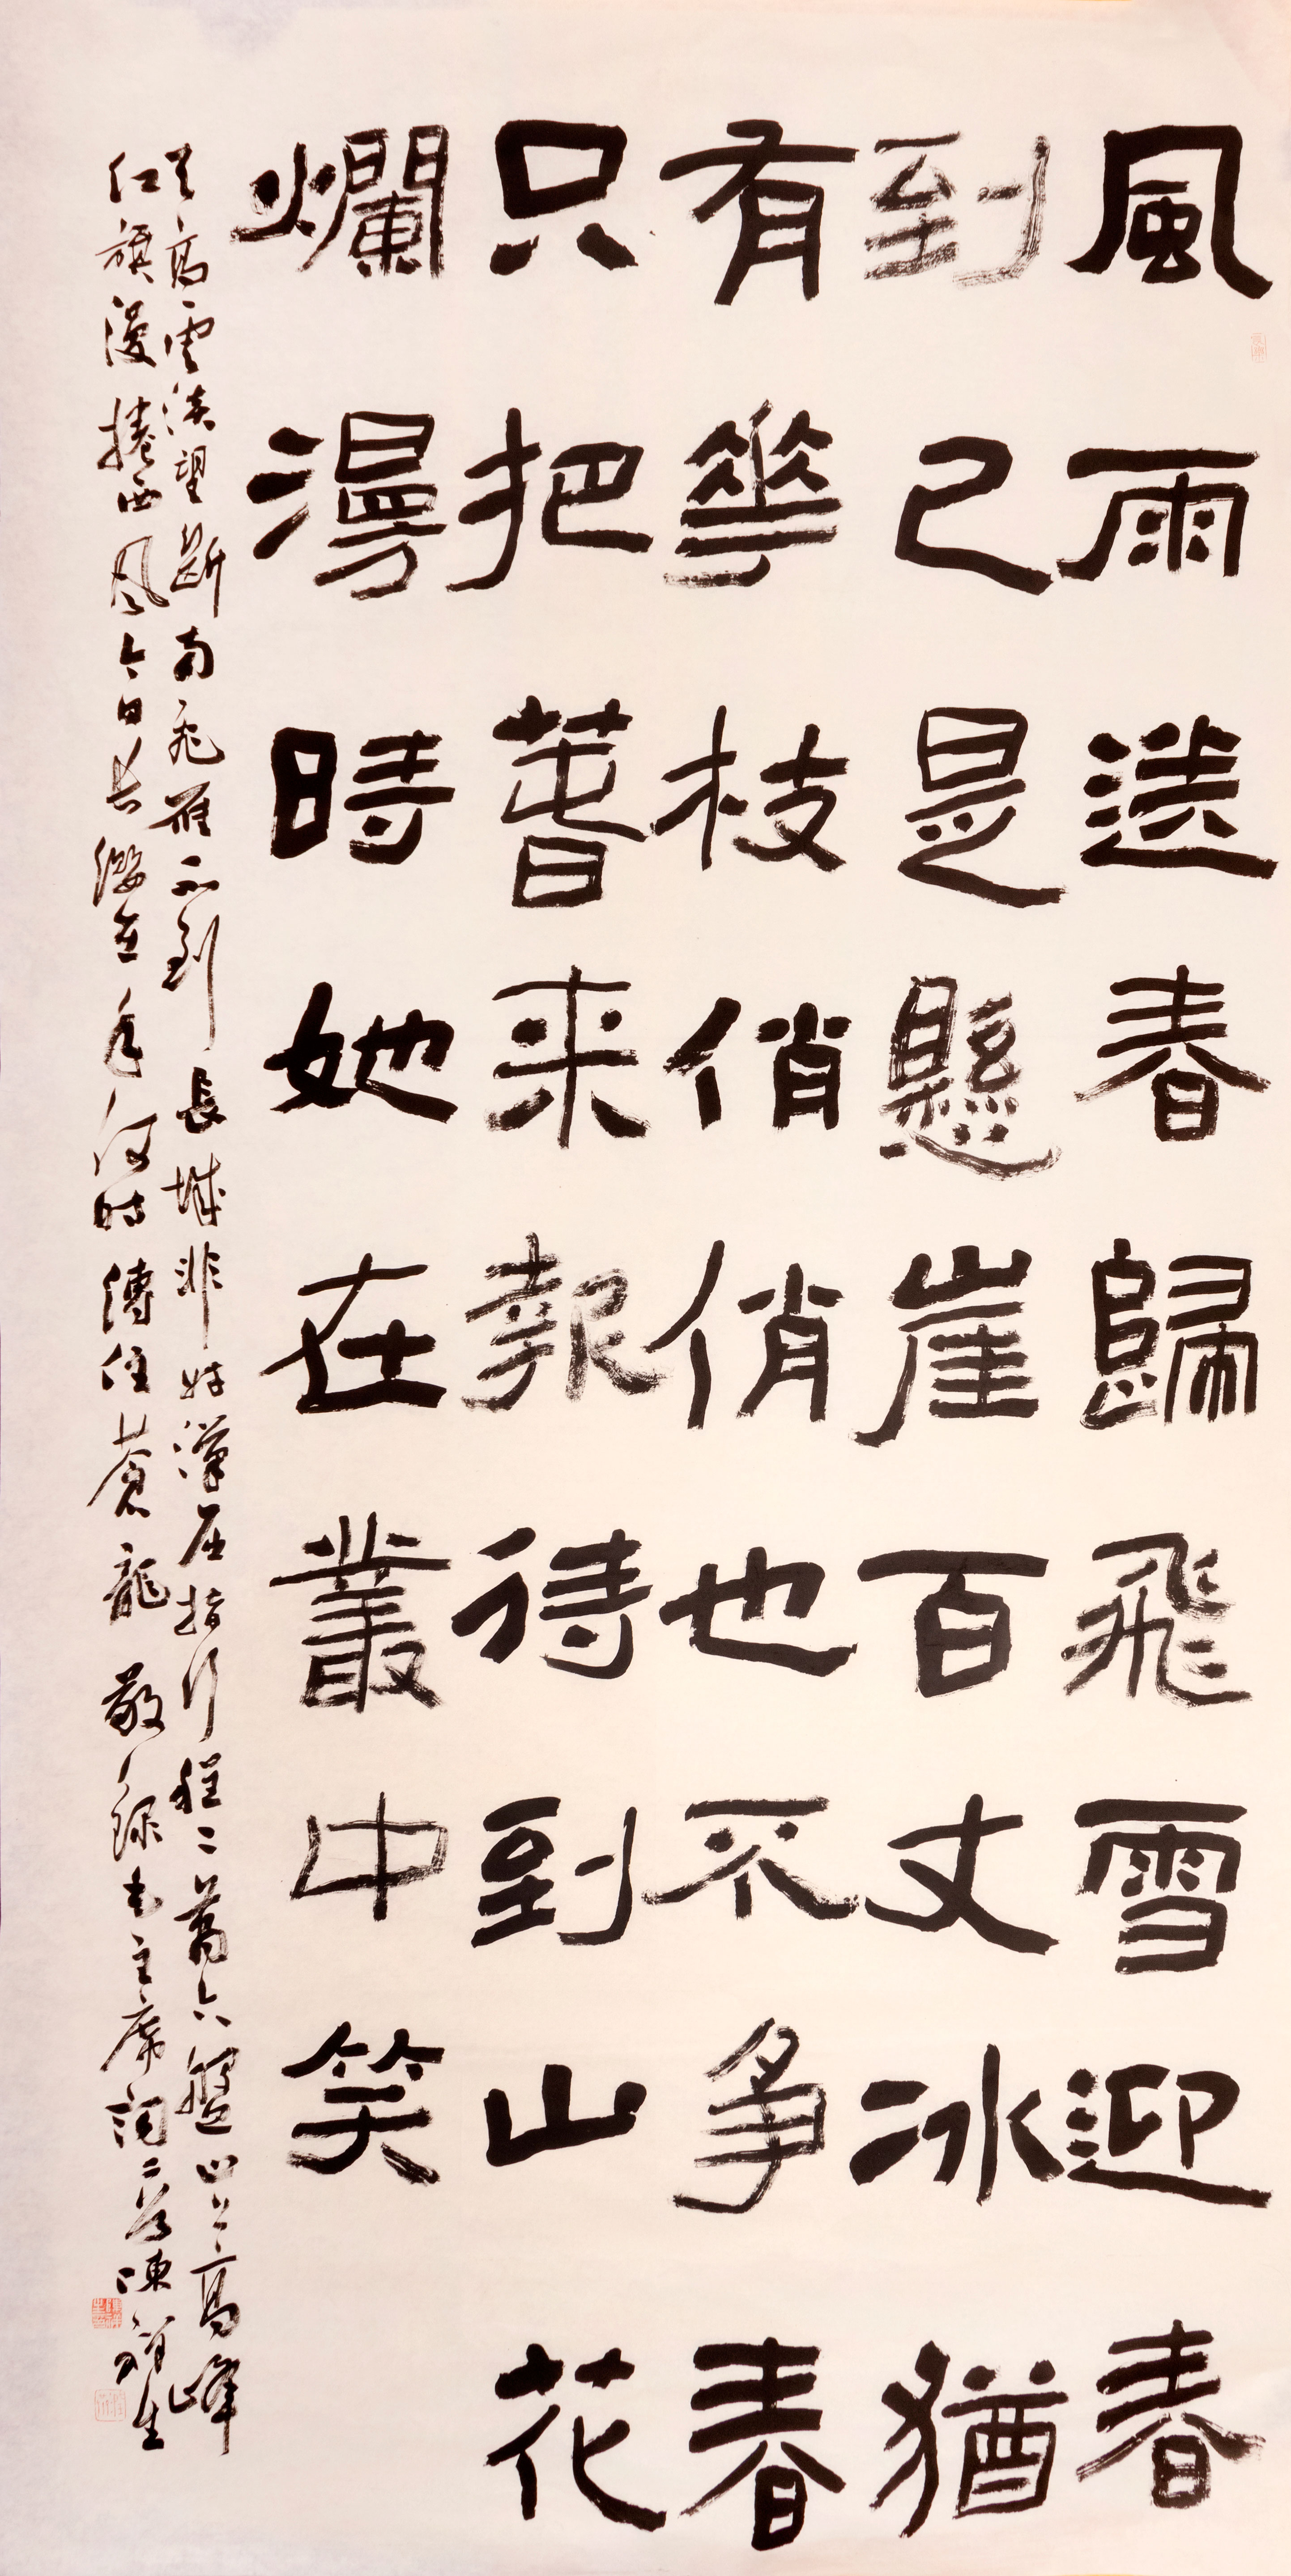 風雨送春歸飛雪迎春
到已是懸崖百丈冰猶
有華枝俏俏也不爭春
只把春来報待到山花
爛漫時她在叢中笑
天高雲淡望斷南飛雁不到長城非好漢屈指行程二萬六盤山上高峰
红旗漫捲西风今日长纓在手何时縛住蒼龍敬録毛主席词二首陳祥生